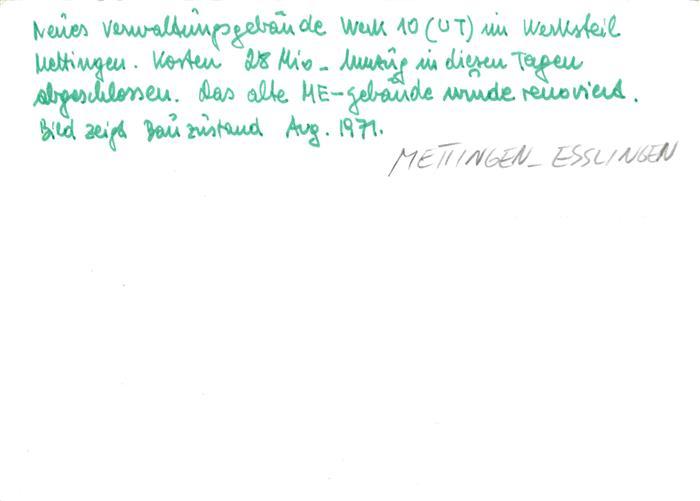 Neues Verwaltungsgebäude Werk 10 (UT) im Werksteil
Mettingen. Kosten 28 Mio - Umzug in diesen Tagen
abgeschlossen. Das alte ME-gebäude wurde renoviert.
Bild zeigt Bauzustand Aug. 1971.
METTINGEN - ESSLINGEN